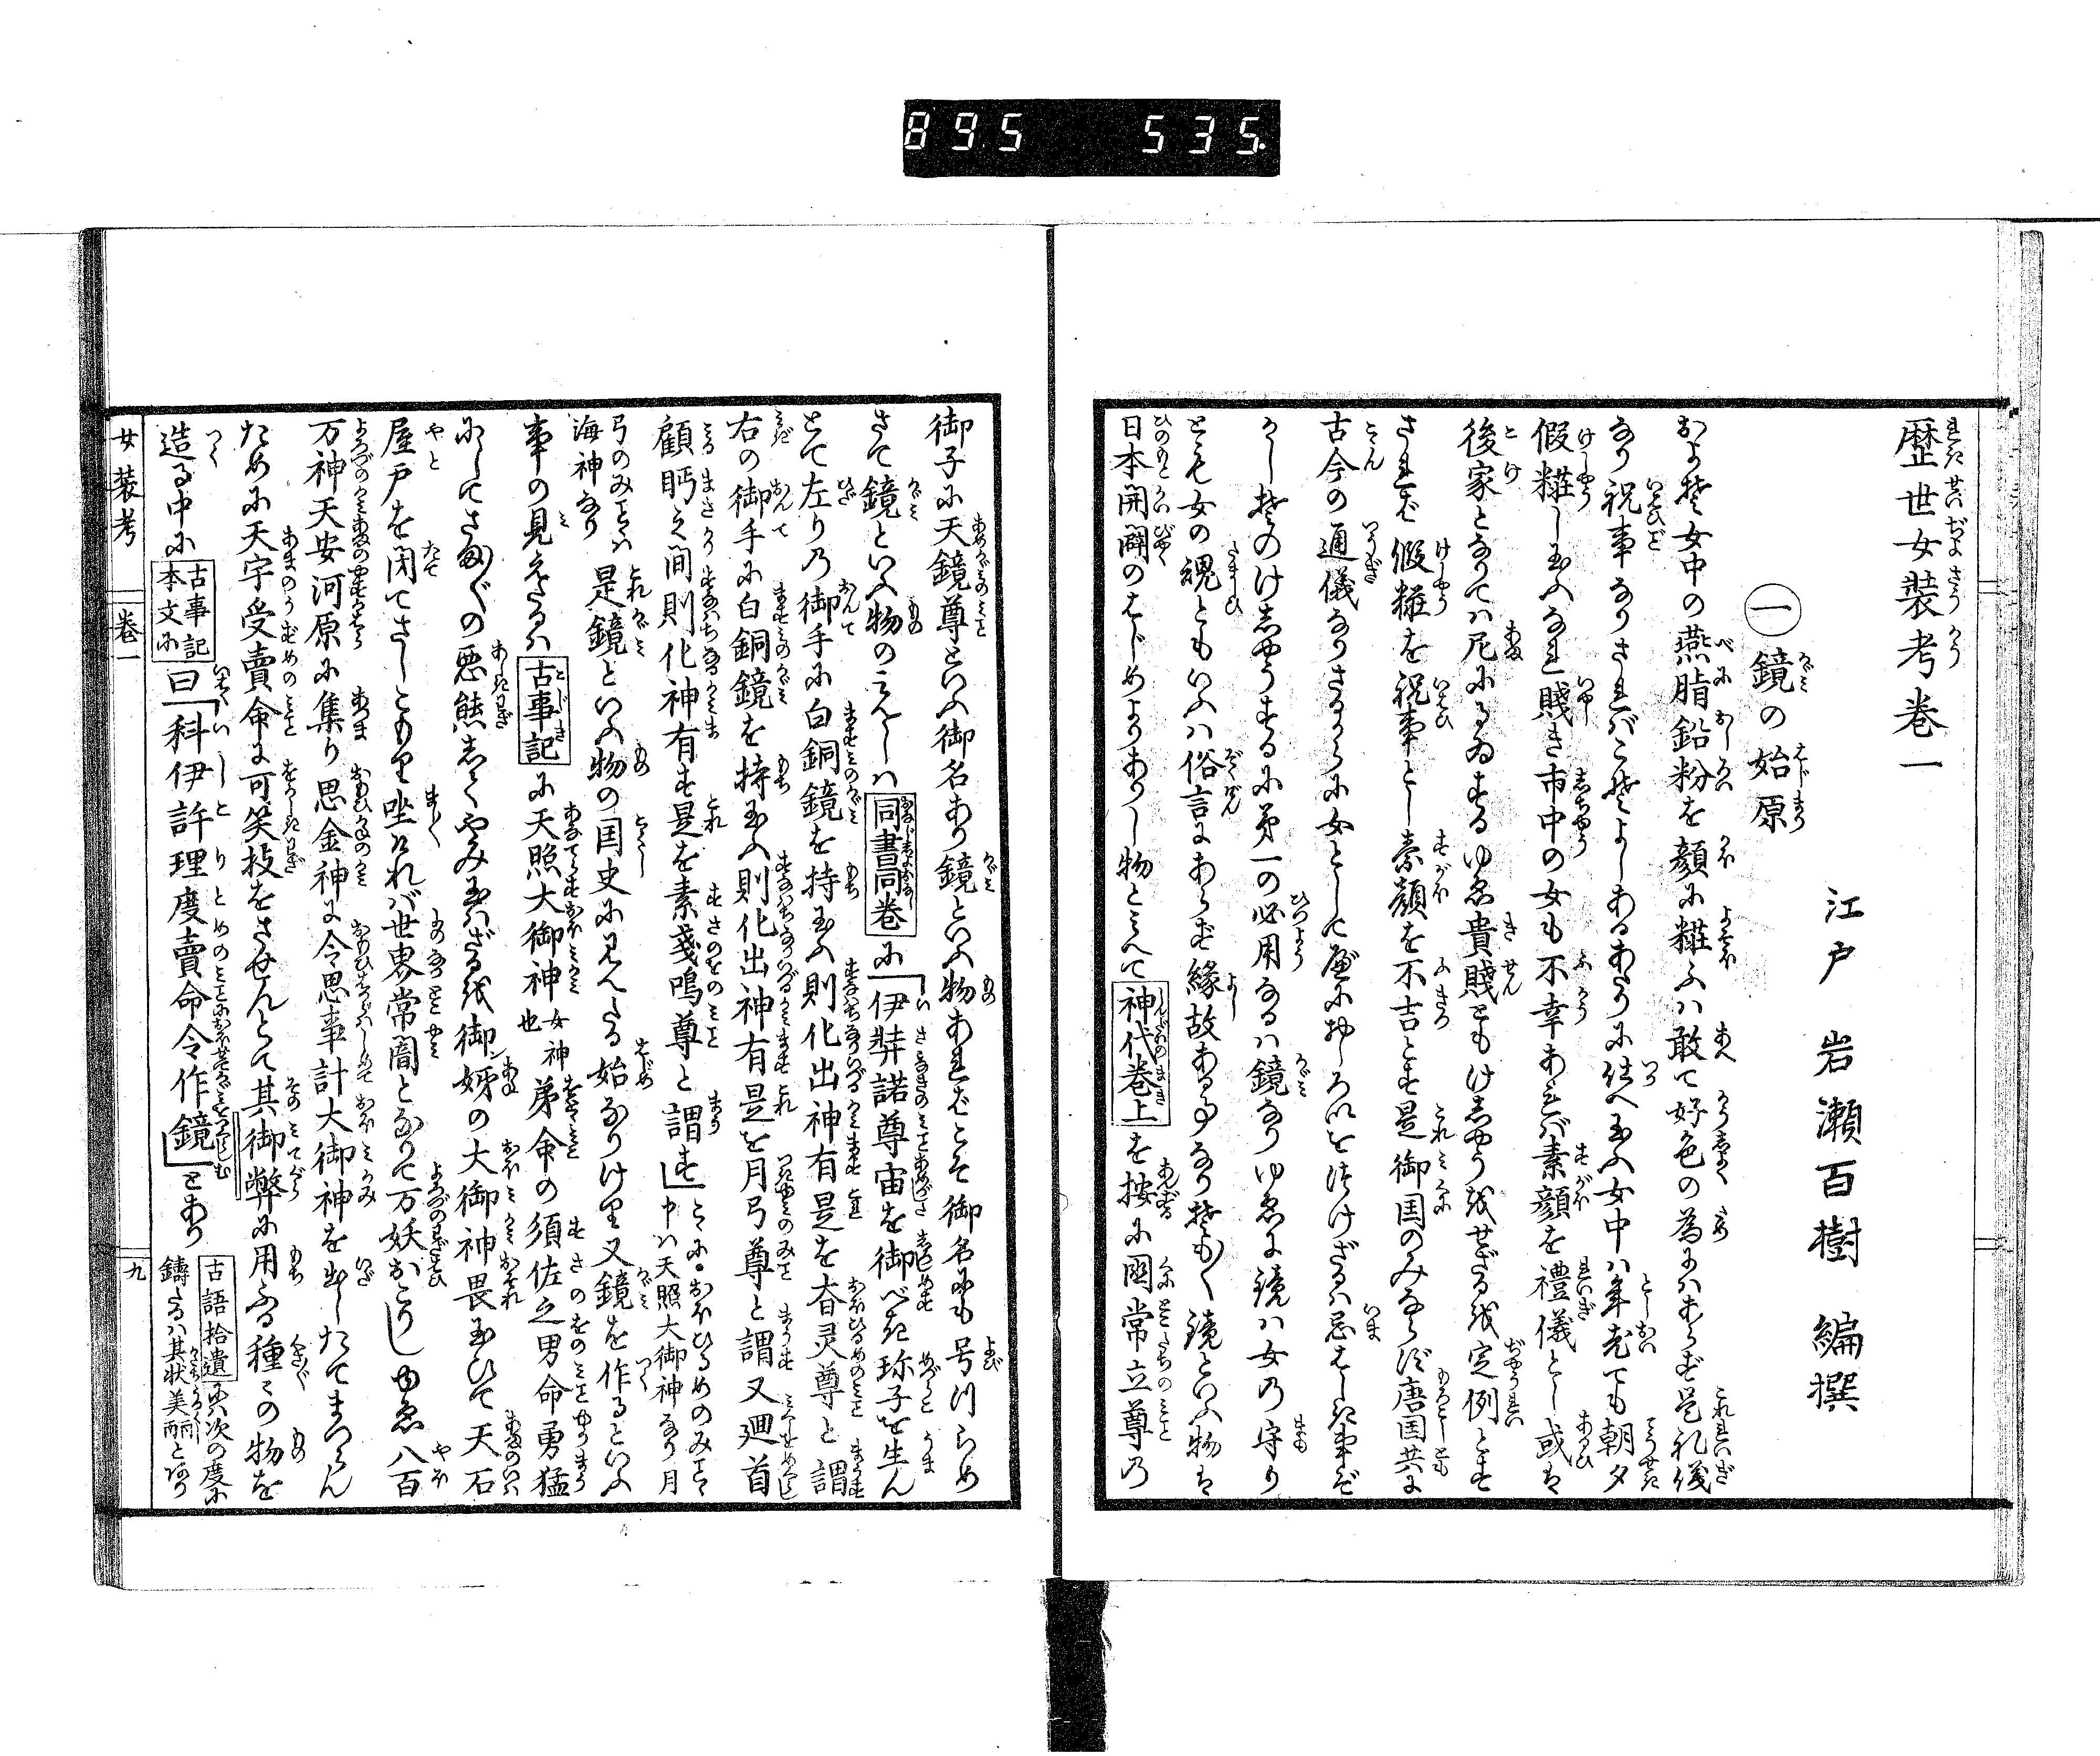 895 535.
歴世女装考巻一
江戸 岩瀬百樹 編撰
㊀鏡の始原
およそ女中の燕脂鉛粉を顔に粧ふハ敢て好色の為にハあらず是礼儀
なり祝事なりされバこそよしあるあたりに仕へ玉ふ女中ハ年老ても朝夕
假粧し玉ふなれ賤き市中の女も不幸あれバ素顔を禮儀とし或は
後家となりてハ尼にるゐするゆゑ貴賤ともけしやうせざるを定例とす
されど假粧を祝事とし素顔を不吉とす是御国のみならず唐国共に
古今の通儀なりさるからに女として
かしそのけしやうするに第一の必用なるハ鏡なりゆゑに鏡ハ女の守り
とも女の魂ともいふハ俗言にあらず縁故ある事なりそも〱鏡といふ物は
日本開闢のはじめよりありし物とみへて神代巻上を按に国常立尊乃
御子に天鏡尊といふ御名あり鏡といふ物あれどこそ御名にも号つらめ
さて鏡といふ物のみえしハ同書同巻に「伊弉諾尊宙を御べき珎子を生ん
とて左り乃御手に白銅鏡を持玉ふ則化出神有是を大日孁尊と謂
右の御手に白銅鏡を持玉ふ則化出神有是を月弓尊と謂又廻首
顧眄之間則化神有す是を素戔嗚尊と謂す」
中ハ天照大御神なり月
弓のみことハ
海神なり
是鏡といふ物の国史に見へたる始なりけり又鏡を作るといふ
事の見えたるハ古事記に天照大御神女神也弟命の須佐之男命勇猛
にしてさま〲の悪態しくやみ玉はざるを御姉の大御神畏玉ひて天石
屋戸を閉てさしこもり坐けれバ世界常闇となりて万妖おこりしゆゑ八百
万神天安河原に集り思金神に令思事計大御神を出したてまつらん
ために天宇受賣命に可笑技をさせんとて其御幣に用ふる種々の物を
造る中に古事記本文に曰「科伊許理度賣命令作鏡」とあり
古語拾遺にハ次の度に
鑄たるハ其状美麗とあり
女装考 巻一 九